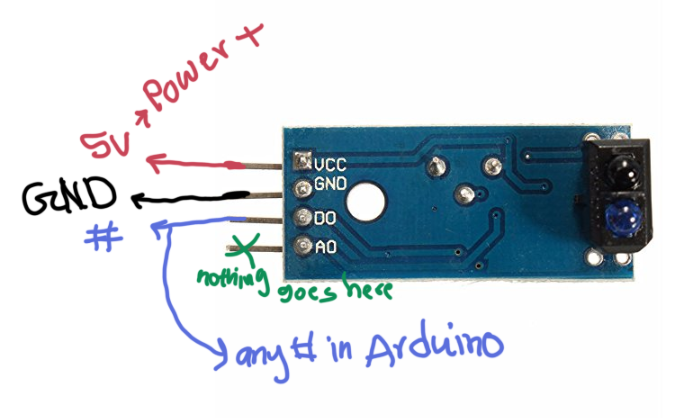 5V → Power +
VCC
GND
GND
#
DO
AO
nothing goes here
any # in Arduino